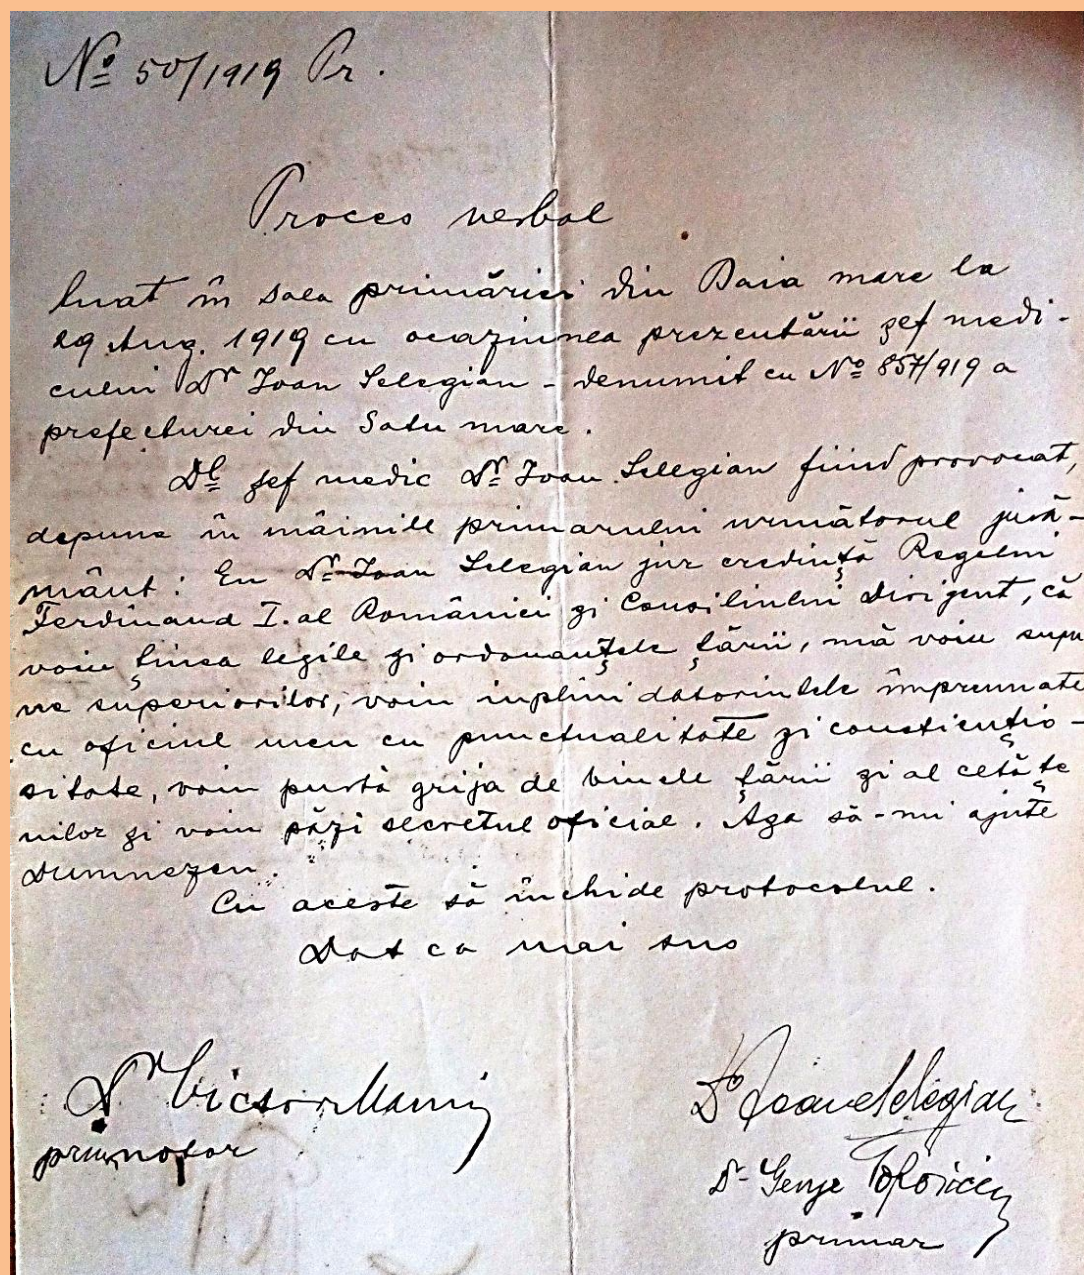 No 50/1919 Pr.
Proces verbal
luat în sala primăriei din Baia mare la
29 Aug. 1919 cu ocaziunea prezentării șef medi-
cului Dr Ioan Selegian - denumit cu No 857/919 a
prefecturei din Satu mare.
Dl șef medic Dr Ioan Selegian fiind provocat,
depune în mâinile primarului următorul jură-
mânt: Eu Dr Ioan Selegian jur credință Regelui
Ferdinand I. al României și Consiliului Dirigent, că
voiu ținea legile și ordonanțele țării, mă voiu supu
ne superiorilor, voiu inplini datorintele împreunate
cu oficiul meu cu punctualitate și constiențio-
sitate, voiu purtà grija de binele țării și al cetățe
nilor și voiu păzi secretul oficial. Așa să-mi ajute
Dumnezeu.
Cu aceste să închide protocolul.
Dat ca mai sus
Dr Victor
primnotar
Dr Ioan Selegian
Dr George
primar